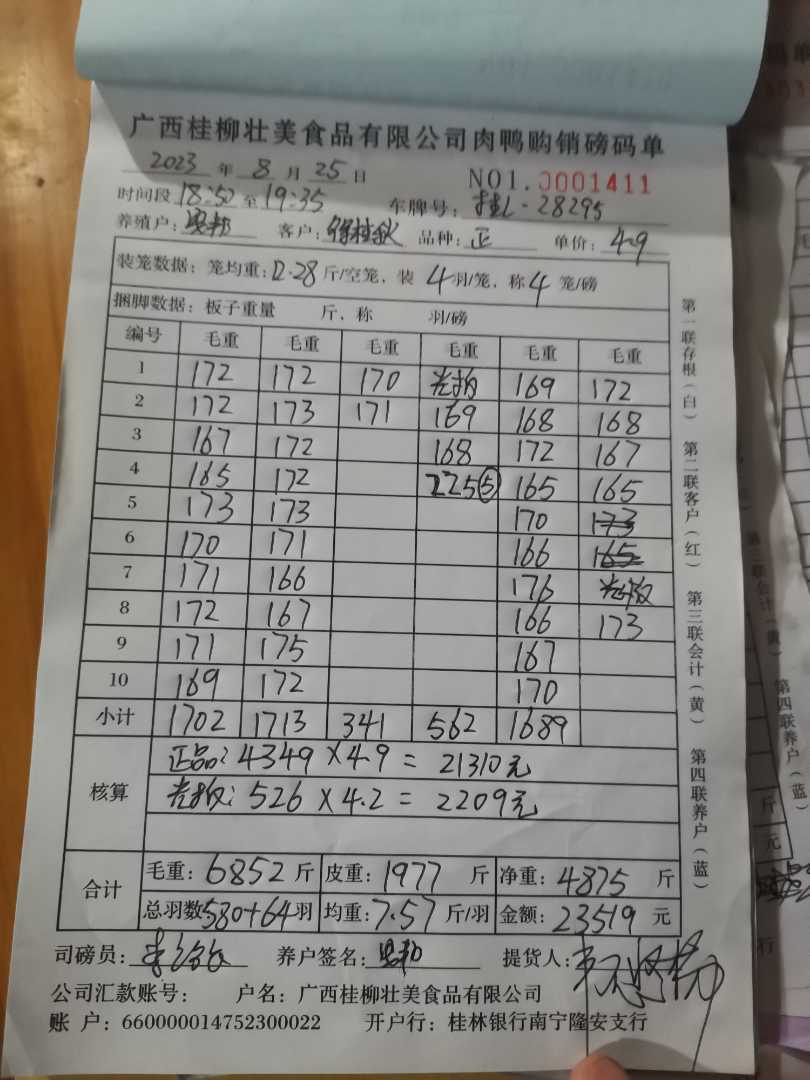 广西桂柳壮美食品有限公司肉鸭购销磅码单
2023 年 8 月 25 日 NO1. 0001411
时间段 18:52 至 19:35 车牌号: 桂L-28295
养殖户: 客户: 品种: 正 单价: 4.9
装笼数据: 笼均重: 12.28 斤/空笼, 装 4 羽/笼, 称 4 笼/磅
捆脚数据: 板子重量 斤, 称 羽/磅
编号 毛重 毛重 毛重 毛重 毛重 毛重
1 172 172 170 169 172
2 172 173 171 169 168 168
3 167 172 168 172 167
4 165 172 225⑤ 165 165
5 173 173 170 173
6 170 171 166 165
7 171 166 176
8 172 167 166 173
9 171 175 167
10 169 172 170
小计 1702 1713 341 562 1689
核算
正品: 4349 × 4.9 = 21310元
526 × 4.2 = 2209元
合计
毛重: 6852 斤 皮重: 1977 斤 净重: 4875 斤
总羽数 580+64 羽 均重: 7.57 斤/羽 金额: 23519 元
司磅员: 养户签名: 提货人:
公司汇款账号: 户名: 广西桂柳壮美食品有限公司
账 户: 660000014752300022 开户行: 桂林银行南宁隆安支行
第一联存根(白) 第二联客户(红) 第三联会计(黄) 第四联养户(蓝)